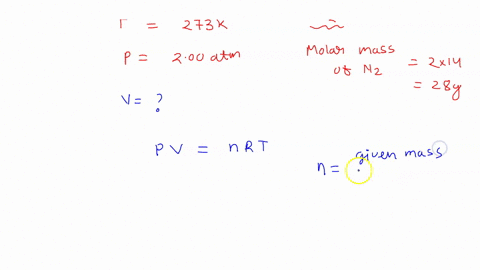 T = 273K
P = 2.00 atm
V = ?
Molar mass
of N2 = 2x14
= 28g
PV = nRT
n = given mass